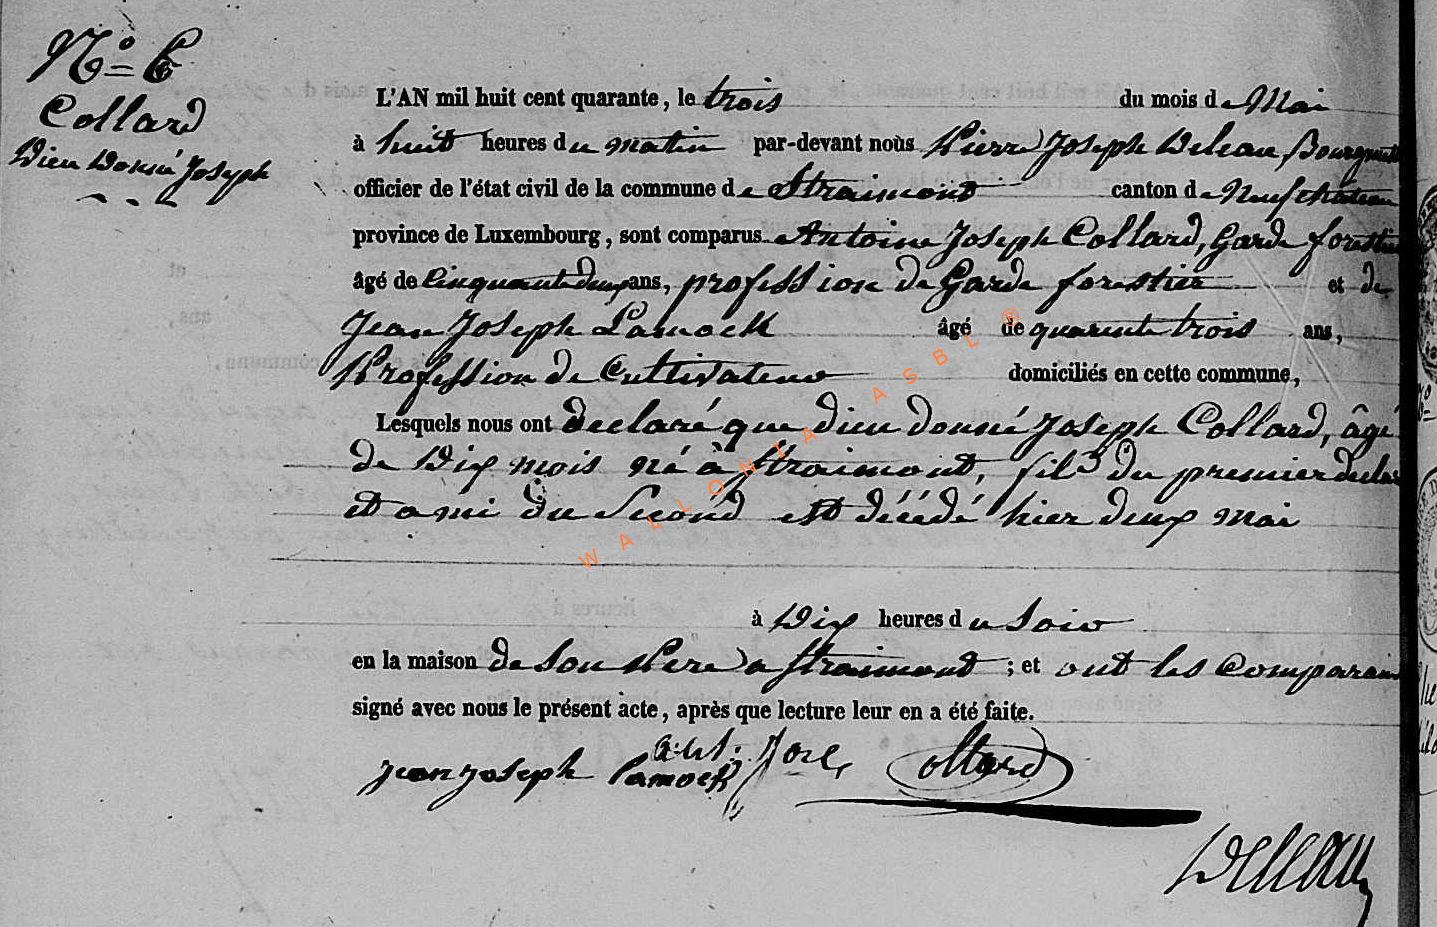 N° 6
Collard
Dieu Donné Joseph
L'AN mil huit cent quarante, le trois du mois de Mai
à huit heures du matin par-devant nous Pierre Joseph Deleau Bourgmest
officier de l'état civil de la commune de Straimont canton de Neufchateau
province de Luxembourg, sont comparus Antoine Joseph Collard, Garde forestier
âgé de Cinquante deux ans, profession de Garde forestier et de
Jean Joseph Lamock âgé de quarente trois ans,
Profession de Cultivateur domiciliés en cette commune,
Lesquels nous ont declaré que dieu donné Joseph Collard, âgé
de Dix mois né à Straimont, fils du premier declar
et ami du Second est décédé hier deux mai
à Dix heures du Soir
en la maison de Son Pere a Straimont ; et ont les Comparain
signé avec nous le présent acte, après que lecture leur en a été faite.
jean joseph Lamock Collard
Deleau
WALLONIA ASBL ©